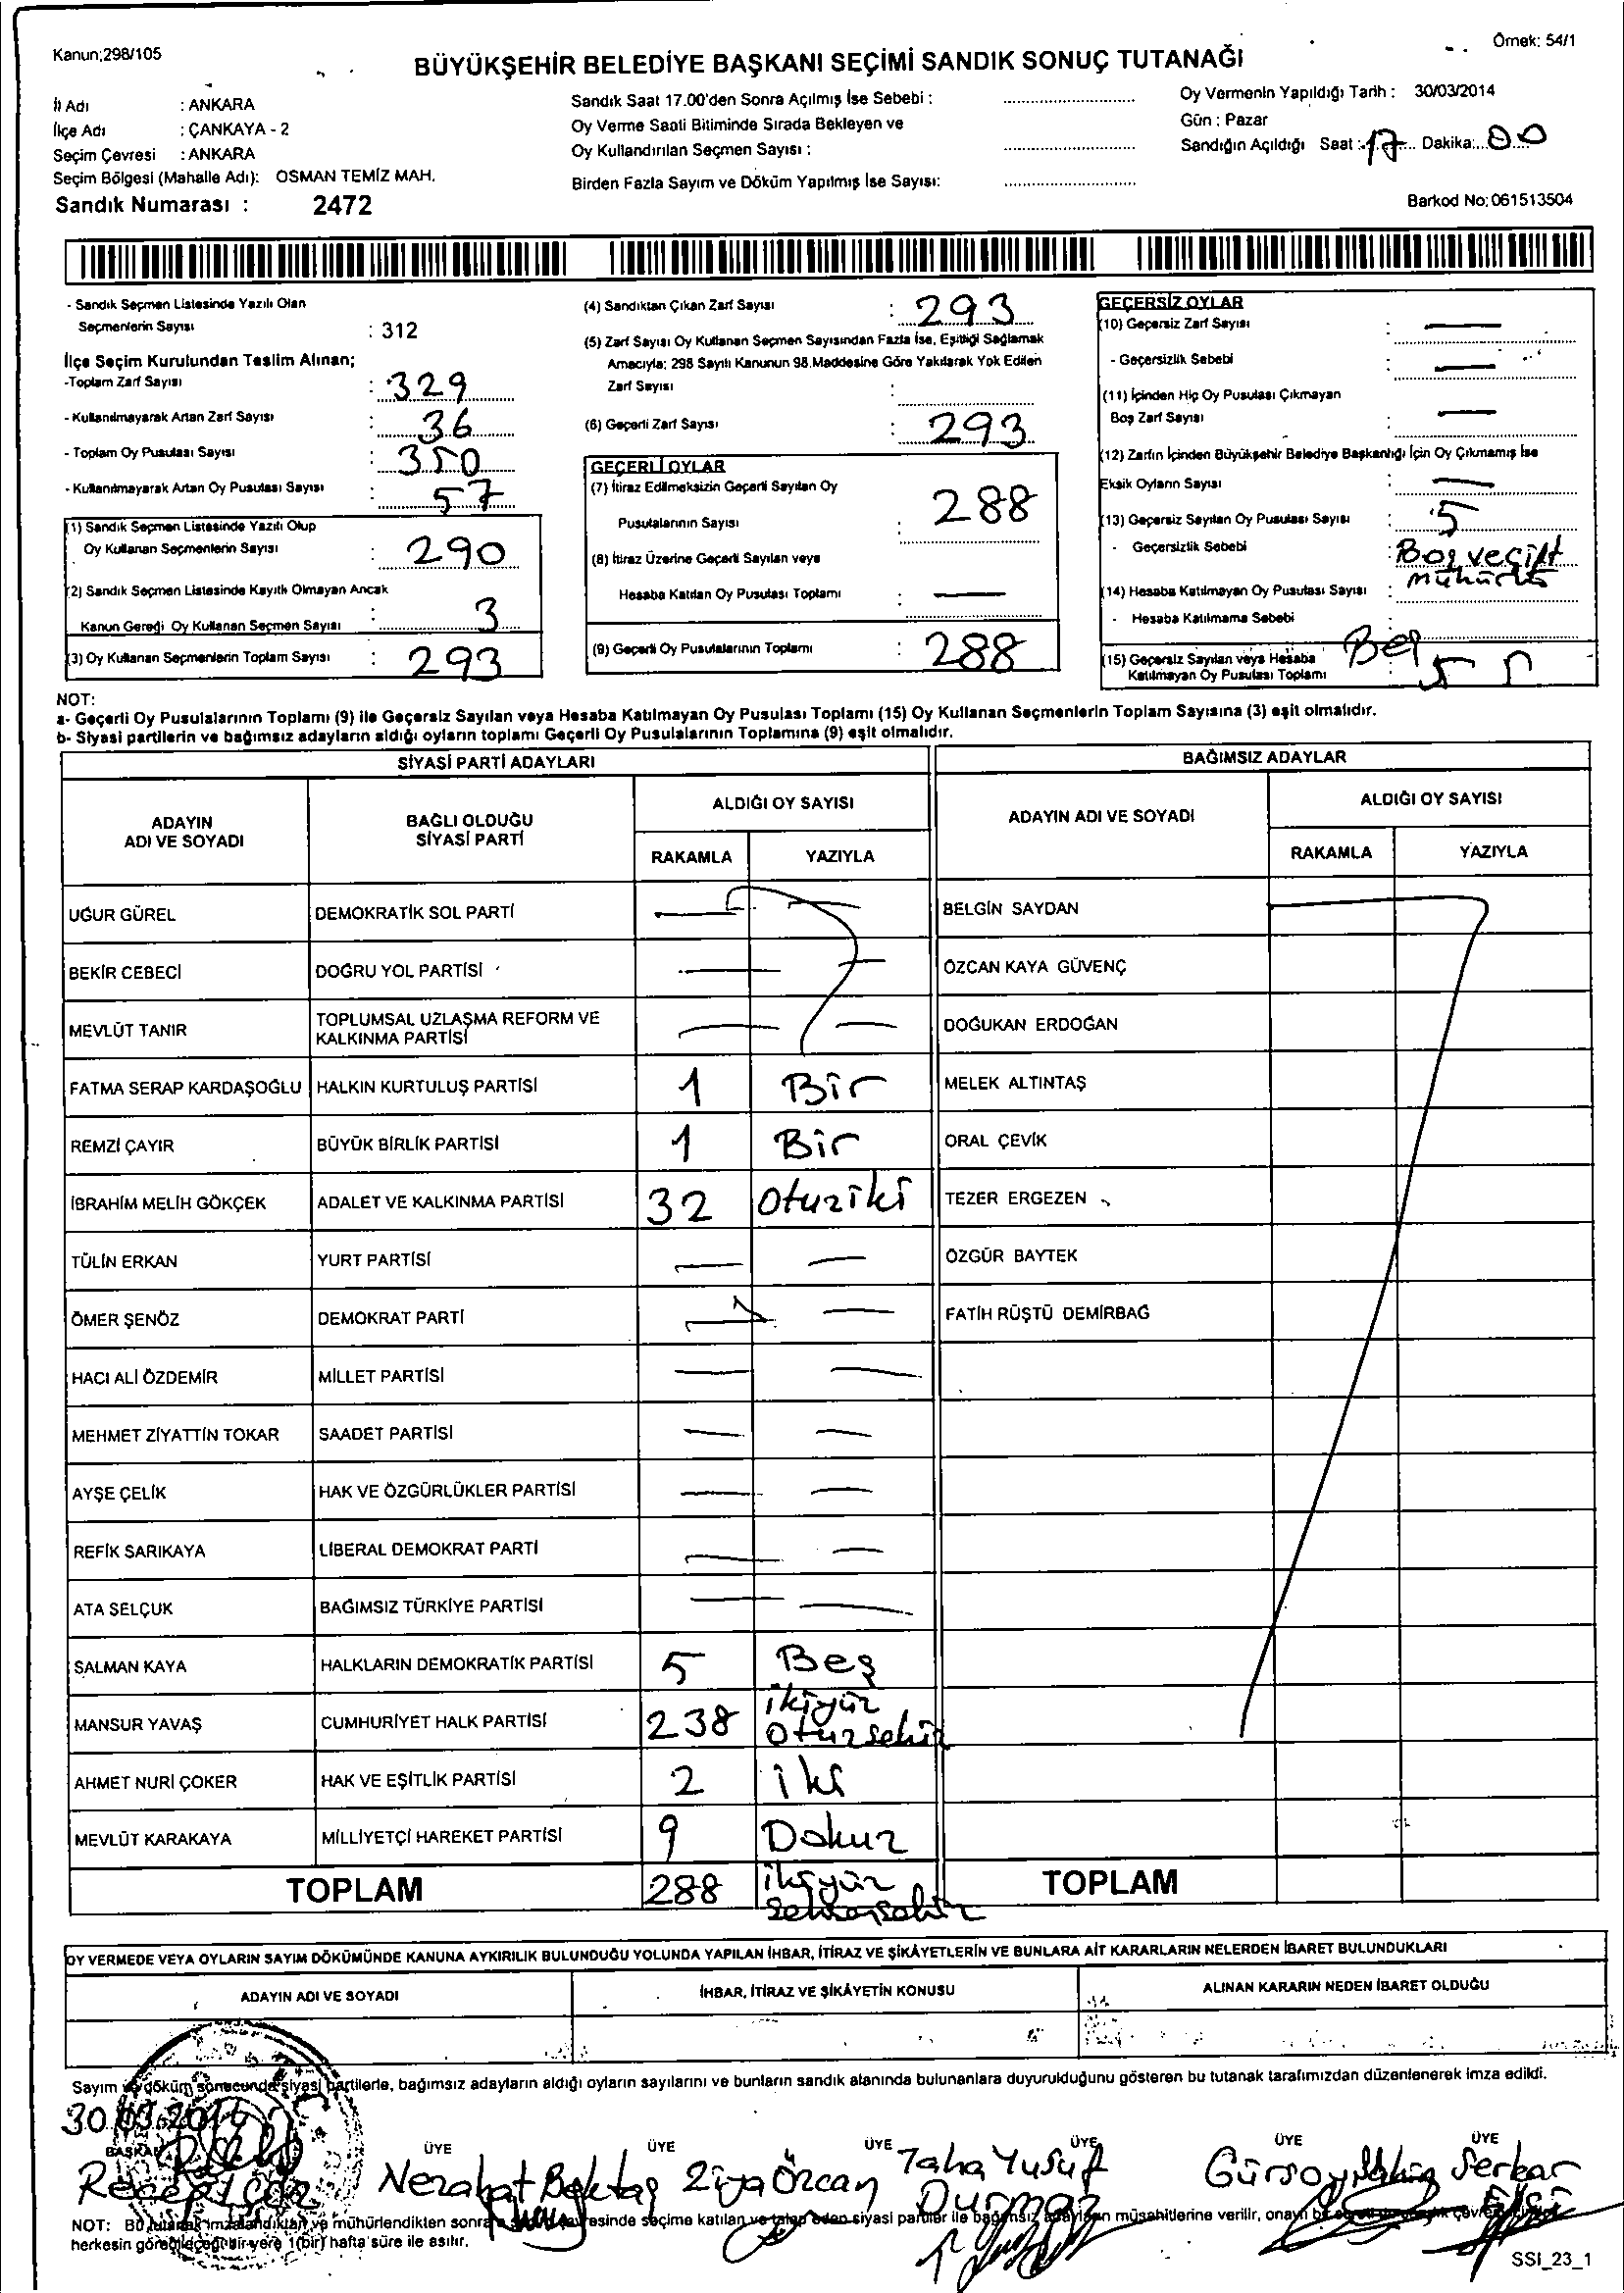 Kanun;298/105
Örnek: 54/1
BÜYÜKŞEHİR BELEDİYE BAŞKANI SEÇİMİ SANDIK SONUÇ TUTANAĞI
İl Adı : ANKARA
İlçe Adı : ÇANKAYA - 2
Seçim Çevresi : ANKARA
Seçim Bölgesi (Mahalle Adı): OSMAN TEMİZ MAH.
Sandık Numarası : 2472
Sandık Saat 17.00'den Sonra Açılmış İse Sebebi :
Oy Verme Saati Bitiminde Sırada Bekleyen ve
Oy Kullandırılan Seçmen Sayısı :
Birden Fazla Sayım ve Döküm Yapılmış İse Sayısı:
Oy Vermenin Yapıldığı Tarih : 30/03/2014
Gün : Pazar
Sandığın Açıldığı Saat : 17 Dakika: 00
Barkod No: 061513504
- Sandık Seçmen Listesinde Yazılı Olan
Seçmenlerin Sayısı : 312
İlçe Seçim Kurulundan Teslim Alınan;
-Toplam Zarf Sayısı : 329
- Kullanılmayarak Artan Zarf Sayısı : 36
- Toplam Oy Pusulası Sayısı : 350
- Kullanılmayarak Artan Oy Pusulası Sayısı : 57
(1) Sandık Seçmen Listesinde Yazılı Olup
Oy Kullanan Seçmenlerin Sayısı : 290
(2) Sandık Seçmen Listesinde Kayıtlı Olmayan Ancak
Kanun Gereği Oy Kullanan Seçmen Sayısı : 3
(3) Oy Kullanan Seçmenlerin Toplam Sayısı : 293
(4) Sandıktan Çıkan Zarf Sayısı : 293
(5) Zarf Sayısı Oy Kullanan Seçmen Sayısından Fazla İse, Eşitliği Sağlamak
Amacıyla; 298 Sayılı Kanunun 98.Maddesine Göre Yakılarak Yok Edilen
Zarf Sayısı :
(6) Geçerli Zarf Sayısı : 293
GEÇERLİ OYLAR
(7) İtiraz Edilmeksizin Geçerli Sayılan Oy
Pusulalarının Sayısı : 288
(8) İtiraz Üzerine Geçerli Sayılan veya
Hesaba Katılan Oy Pusulası Toplamı : —
(9) Geçerli Oy Pusulalarının Toplamı : 288
GEÇERSİZ OYLAR
(10) Geçersiz Zarf Sayısı : —
- Geçersizlik Sebebi : —
(11) İçinden Hiç Oy Pusulası Çıkmayan
Boş Zarf Sayısı : —
(12) Zarfın İçinden Büyükşehir Belediye Başkanlığı İçin Oy Çıkmamış İse
Eksik Oyların Sayısı : —
(13) Geçersiz Sayılan Oy Pusulası Sayısı : 5
- Geçersizlik Sebebi : Boş ve çift
mühürlü
(14) Hesaba Katılmayan Oy Pusulası Sayısı :
- Hesaba Katılmama Sebebi :
(15) Geçersiz Sayılan veya Hesaba
Katılmayan Oy Pusulası Toplamı Beş 5
NOT:
a- Geçerli Oy Pusulalarının Toplamı (9) ile Geçersiz Sayılan veya Hesaba Katılmayan Oy Pusulası Toplamı (15) Oy Kullanan Seçmenlerin Toplam Sayısına (3) eşit olmalıdır.
b- Siyasi partilerin ve bağımsız adayların aldığı oyların toplamı Geçerli Oy Pusulalarının Toplamına (9) eşit olmalıdır.
SİYASİ PARTİ ADAYLARI
BAĞIMSIZ ADAYLAR
ADAYIN
ADI VE SOYADI
BAĞLI OLDUĞU
SİYASİ PARTİ
ALDIĞI OY SAYISI
RAKAMLA YAZIYLA
ADAYIN ADI VE SOYADI
ALDIĞI OY SAYISI
RAKAMLA YAZIYLA
UĞUR GÜREL DEMOKRATİK SOL PARTİ — — BELGİN SAYDAN
BEKİR CEBECİ DOĞRU YOL PARTİSİ — — ÖZCAN KAYA GÜVENÇ
MEVLÜT TANIR TOPLUMSAL UZLAŞMA REFORM VE
KALKINMA PARTİSİ — — DOĞUKAN ERDOĞAN
FATMA SERAP KARDAŞOĞLU HALKIN KURTULUŞ PARTİSİ 1 Bir MELEK ALTINTAŞ
REMZİ ÇAYIR BÜYÜK BİRLİK PARTİSİ 1 Bir ORAL ÇEVİK
İBRAHİM MELİH GÖKÇEK ADALET VE KALKINMA PARTİSİ 32 Otuziki TEZER ERGEZEN
TÜLİN ERKAN YURT PARTİSİ — — ÖZGÜR BAYTEK
ÖMER ŞENÖZ DEMOKRAT PARTİ — — FATİH RÜŞTÜ DEMİRBAĞ
HACI ALİ ÖZDEMİR MİLLET PARTİSİ — —
MEHMET ZİYATTİN TOKAR SAADET PARTİSİ — —
AYŞE ÇELİK HAK VE ÖZGÜRLÜKLER PARTİSİ — —
REFİK SARIKAYA LİBERAL DEMOKRAT PARTİ — —
ATA SELÇUK BAĞIMSIZ TÜRKİYE PARTİSİ — —
SALMAN KAYA HALKLARIN DEMOKRATİK PARTİSİ 5 Beş
MANSUR YAVAŞ CUMHURİYET HALK PARTİSİ 238 ikiyüz
Otuzsekiz
AHMET NURİ ÇOKER HAK VE EŞİTLİK PARTİSİ 2 iki
MEVLÜT KARAKAYA MİLLİYETÇİ HAREKET PARTİSİ 9 Dokuz
TOPLAM 288 ikiyüz
Seksensekiz TOPLAM
OY VERMEDE VEYA OYLARIN SAYIM DÖKÜMÜNDE KANUNA AYKIRILIK BULUNDUĞU YOLUNDA YAPILAN İHBAR, İTİRAZ VE ŞİKÂYETLERİN VE BUNLARA AİT KARARLARIN NELERDEN İBARET BULUNDUKLARI
ADAYIN ADI VE SOYADI İHBAR, İTİRAZ VE ŞİKÂYETİN KONUSU ALINAN KARARIN NEDEN İBARET OLDUĞU
Sayım ve döküm sonucunda siyasi partilerle, bağımsız adayların aldığı oyların sayılarını ve bunların sandık alanında bulunanlara duyurulduğunu gösteren bu tutanak tarafımızdan düzenlenerek imza edildi.
30.03.2014
BAŞKAN ÜYE ÜYE ÜYE ÜYE ÜYE ÜYE
Recep Nezahat Bektaş Ziya Özcan Taha Yusuf Durmaz Gürsoy Şahin Serkar
NOT: Bu tutanak imzalandıktan ve mühürlendikten sonra seçime katılan ve talep eden siyasi partiler ile bağımsız adayların müşahitlerine verilir, onaylı
herkesin görebileceği bir yere 1(bir) hafta süre ile asılır.
SSI_23_1